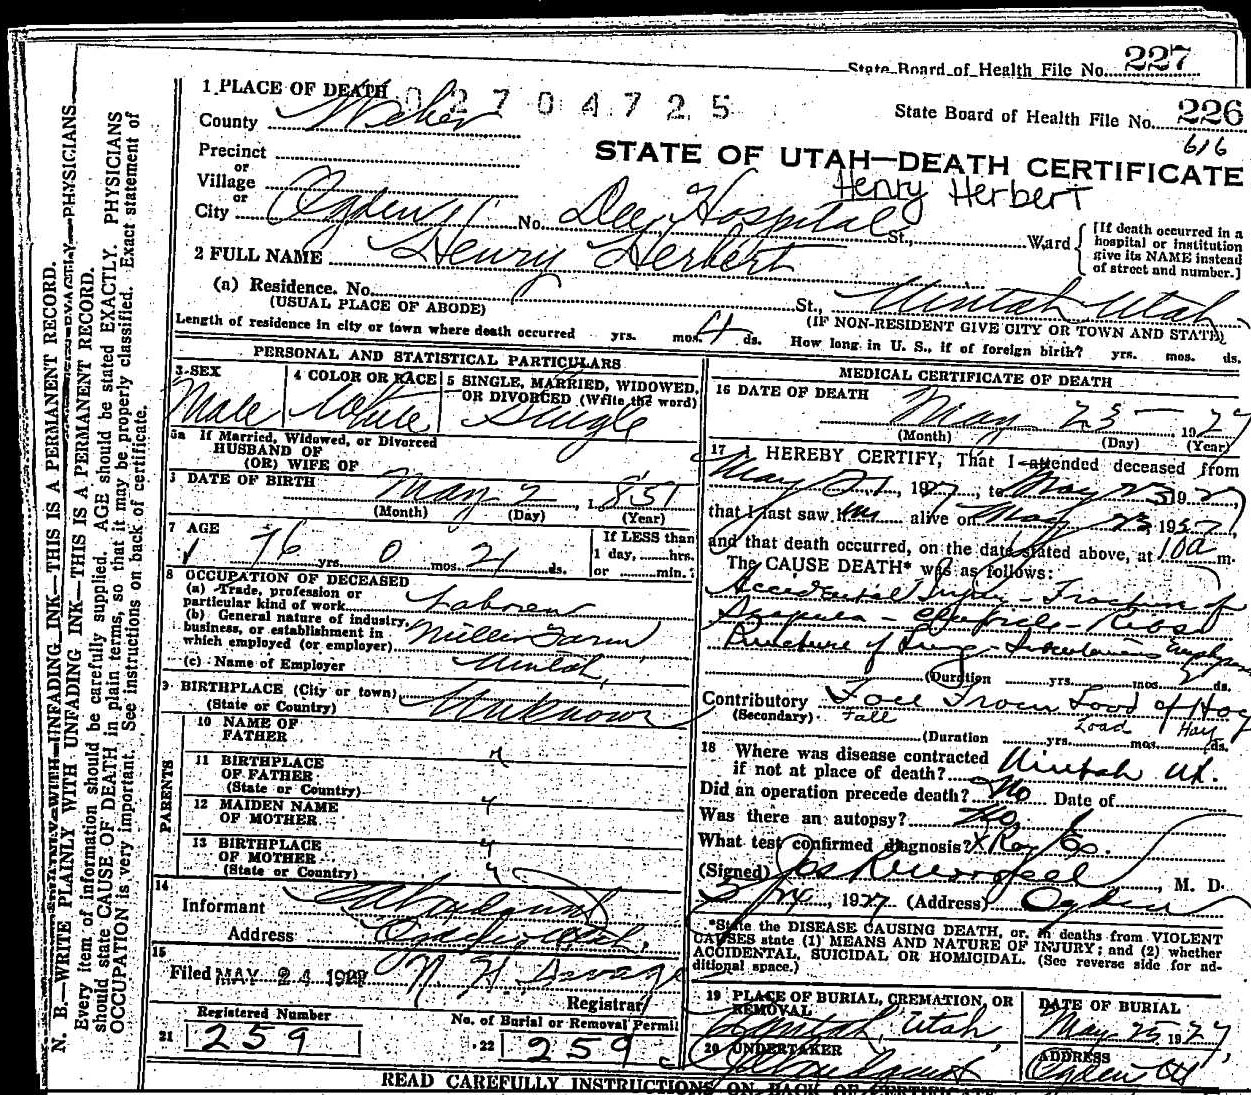 State Board of Health File No. 227
1 PLACE OF DEATH 0 2 7 0 4 7 2 5
State Board of Health File No. 226
616
County Weber
STATE OF UTAH—DEATH CERTIFICATE
Precinct
or
Village
Henry Herbert
or
City Ogden No. Dee Hospital St., Ward
[If death occurred in a hospital or institution give its NAME instead of street and number.]
2 FULL NAME Henry Herbert
(a) Residence. No. St., Uintah Utah
(USUAL PLACE OF ABODE) (IF NON-RESIDENT GIVE CITY OR TOWN AND STATE)
Length of residence in city or town where death occurred yrs. mos. 4 ds. How long in U. S., if of foreign birth? yrs. mos. ds.
PERSONAL AND STATISTICAL PARTICULARS
3 SEX
Male
4 COLOR OR RACE
White
5 SINGLE, MARRIED, WIDOWED, OR DIVORCED (Write the word)
Single
5a If Married, Widowed, or Divorced
HUSBAND OF
(OR) WIFE OF
DATE OF BIRTH May 2, 1851
(Month) (Day) (Year)
7 AGE
76 yrs. 0 mos. 21 ds.
If LESS than
1 day, hrs.
or min.?
8 OCCUPATION OF DECEASED
(a) Trade, profession or
particular kind of work Laborer
(b) General nature of industry,
business, or establishment in
which employed (or employer) Farm
(c) Name of Employer Uintah,
9 BIRTHPLACE (City or town)
(State or Country) Unknown
PARENTS
10 NAME OF
FATHER
11 BIRTHPLACE
OF FATHER
(State or Country)
12 MAIDEN NAME
OF MOTHER
13 BIRTHPLACE
OF MOTHER
(State or Country)
14
Informant
Address Ogden, Utah,
15
Filed MAY 24 1927
Registrar
Registered Number
21 259
No. of Burial or Removal Permit
22 259
MEDICAL CERTIFICATE OF DEATH
16 DATE OF DEATH
May 23 — 1927
(Month) (Day) (Year)
17 I HEREBY CERTIFY, That I attended deceased from
May 21, 1927, to May 23 1927
that I last saw him alive on May 23, 1927,
and that death occurred, on the date stated above, at 10a m.
The CAUSE DEATH* was as follows:
Accidental Injury - Fracture of
Scapula - Clavicle - Ribs
Puncture of Lung - Subcutaneous Emphysema
(Duration yrs. mos. ds.
Contributory Fall From Load of Hay
(Secondary) Fall Load Hay
(Duration yrs. mos. ds.
18 Where was disease contracted
if not at place of death? Uintah Ut.
Did an operation precede death? No Date of
Was there an autopsy? No
What test confirmed diagnosis? X Ray
(Signed) , M. D.
5/24, 1927 (Address) Ogden
*State the DISEASE CAUSING DEATH, or, in deaths from VIOLENT
CAUSES state (1) MEANS AND NATURE OF INJURY; and (2) whether
ACCIDENTAL, SUICIDAL OR HOMICIDAL. (See reverse side for ad-
ditional space.)
19 PLACE OF BURIAL, CREMATION, OR REMOVAL
Uintah, Utah,
DATE OF BURIAL
May 25 1927
20 UNDERTAKER
ADDRESS
Ogden Ut
READ CAREFULLY INSTRUCTIONS ON BACK OF CERTIFICATE
N. B.—WRITE PLAINLY WITH UNFADING INK—THIS IS A PERMANENT RECORD.
Every item of information should be carefully supplied. AGE should be stated EXACTLY. PHYSICIANS
should state CAUSE OF DEATH in plain terms, so that it may be properly classified. Exact statement of
OCCUPATION is very important. See instructions on back of certificate.